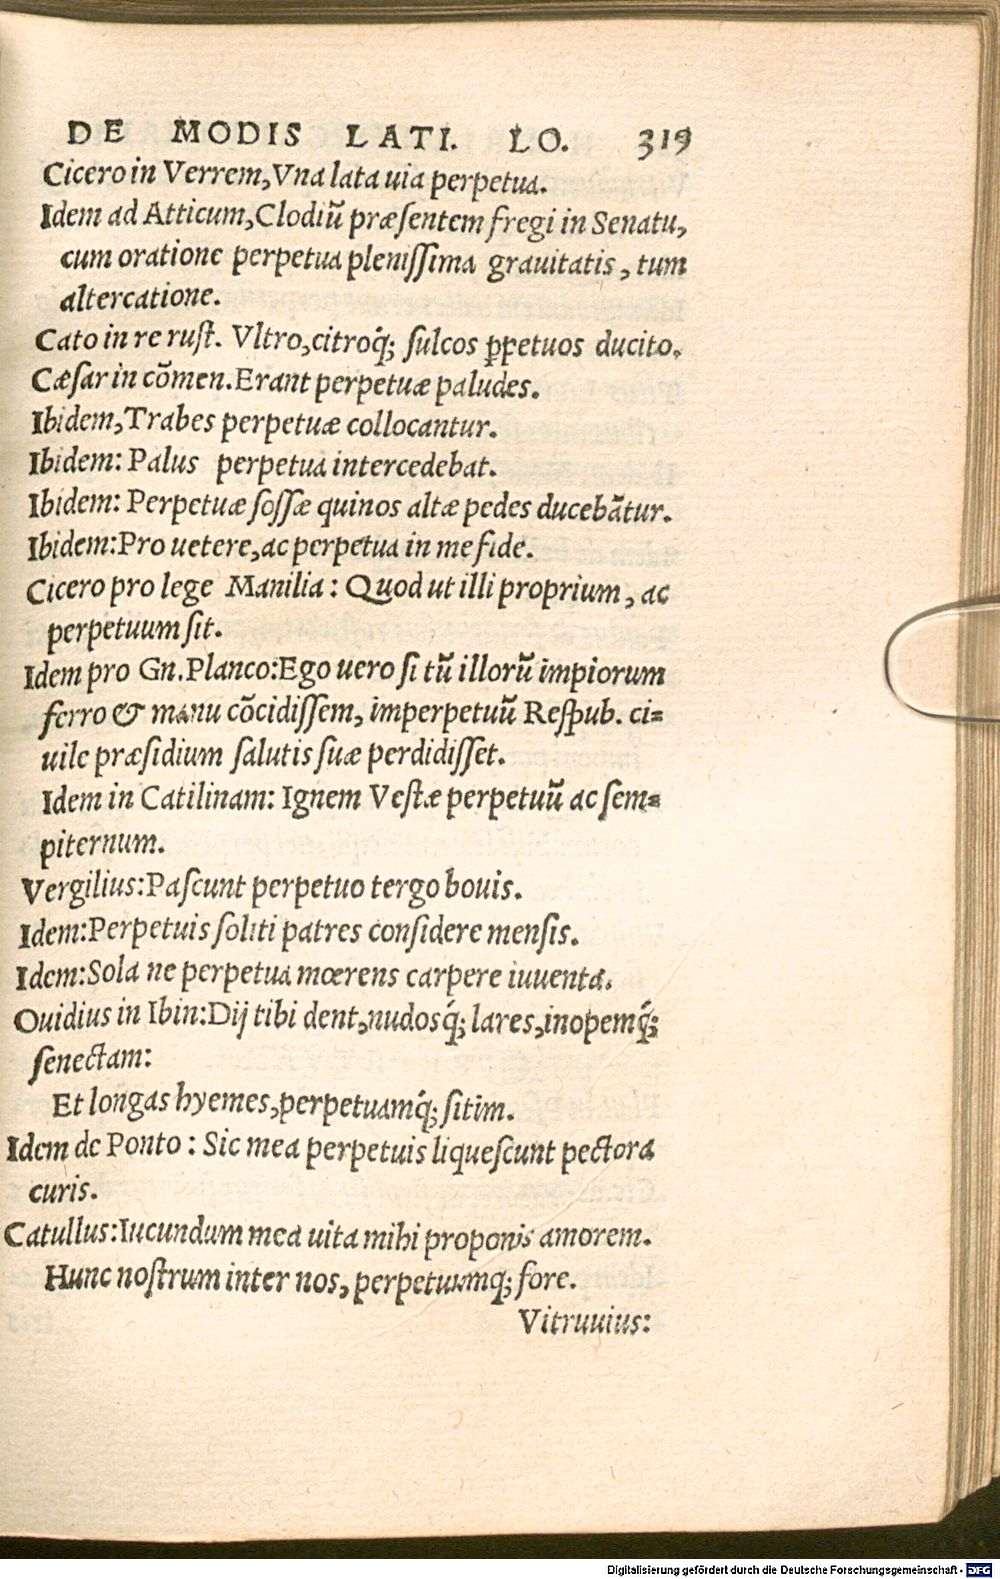 DE MODIS LATI. LO. 319
Cicero in Verrem, Vna lata uia perpetua.
Idem ad Atticum, Clodiũ præſentem fregi in Senatu,
cum oratione perpetua pleniſſima grauitatis, tum
altercatione.
Cato in re ruſt. Vltro, citroq́; ſulcos ꝑpetuos ducito.
Cæſar in cõmen. Erant perpetuæ paludes.
Ibidem, Trabes perpetuæ collocantur.
Ibidem: Palus perpetua intercedebat.
Ibidem: Perpetuæ foſſæ quinos altæ pedes ducebãtur.
Ibidem: Pro uetere, ac perpetua in me fide.
Cicero pro lege Manilia: Quod ut illi proprium, ac
perpetuum ſit.
Idem pro Gn. Planco: Ego uero ſi tũ illorũ impiorum
ferro & manu cõcidiſſem, imperpetuũ Reſpub. ci-
uile præſidium ſalutis ſuæ perdidiſſet.
Idem in Catilinam: Ignem Veſtæ perpetuũ ac ſem-
piternum.
Vergilius: Paſcunt perpetuo tergo bouis.
Idem: Perpetuis ſoliti patres conſidere menſis.
Idem: Sola ne perpetua mœrens carpere iuuenta.
Ouidius in Ibin: Dij tibi dent, nudosq́; lares, inopemq́;
ſenectam:
Et longas hyemes, perpetuamq́; ſitim.
Idem de Ponto: Sic mea perpetuis liqueſcunt pectora
curis.
Catullus: Iucundum mea uita mihi proponis amorem.
Hunc noſtrum inter nos, perpetuumq; fore.
Vitruuius:
Digitalisierung gefördert durch die Deutsche Forschungsgemeinschaft - DFG